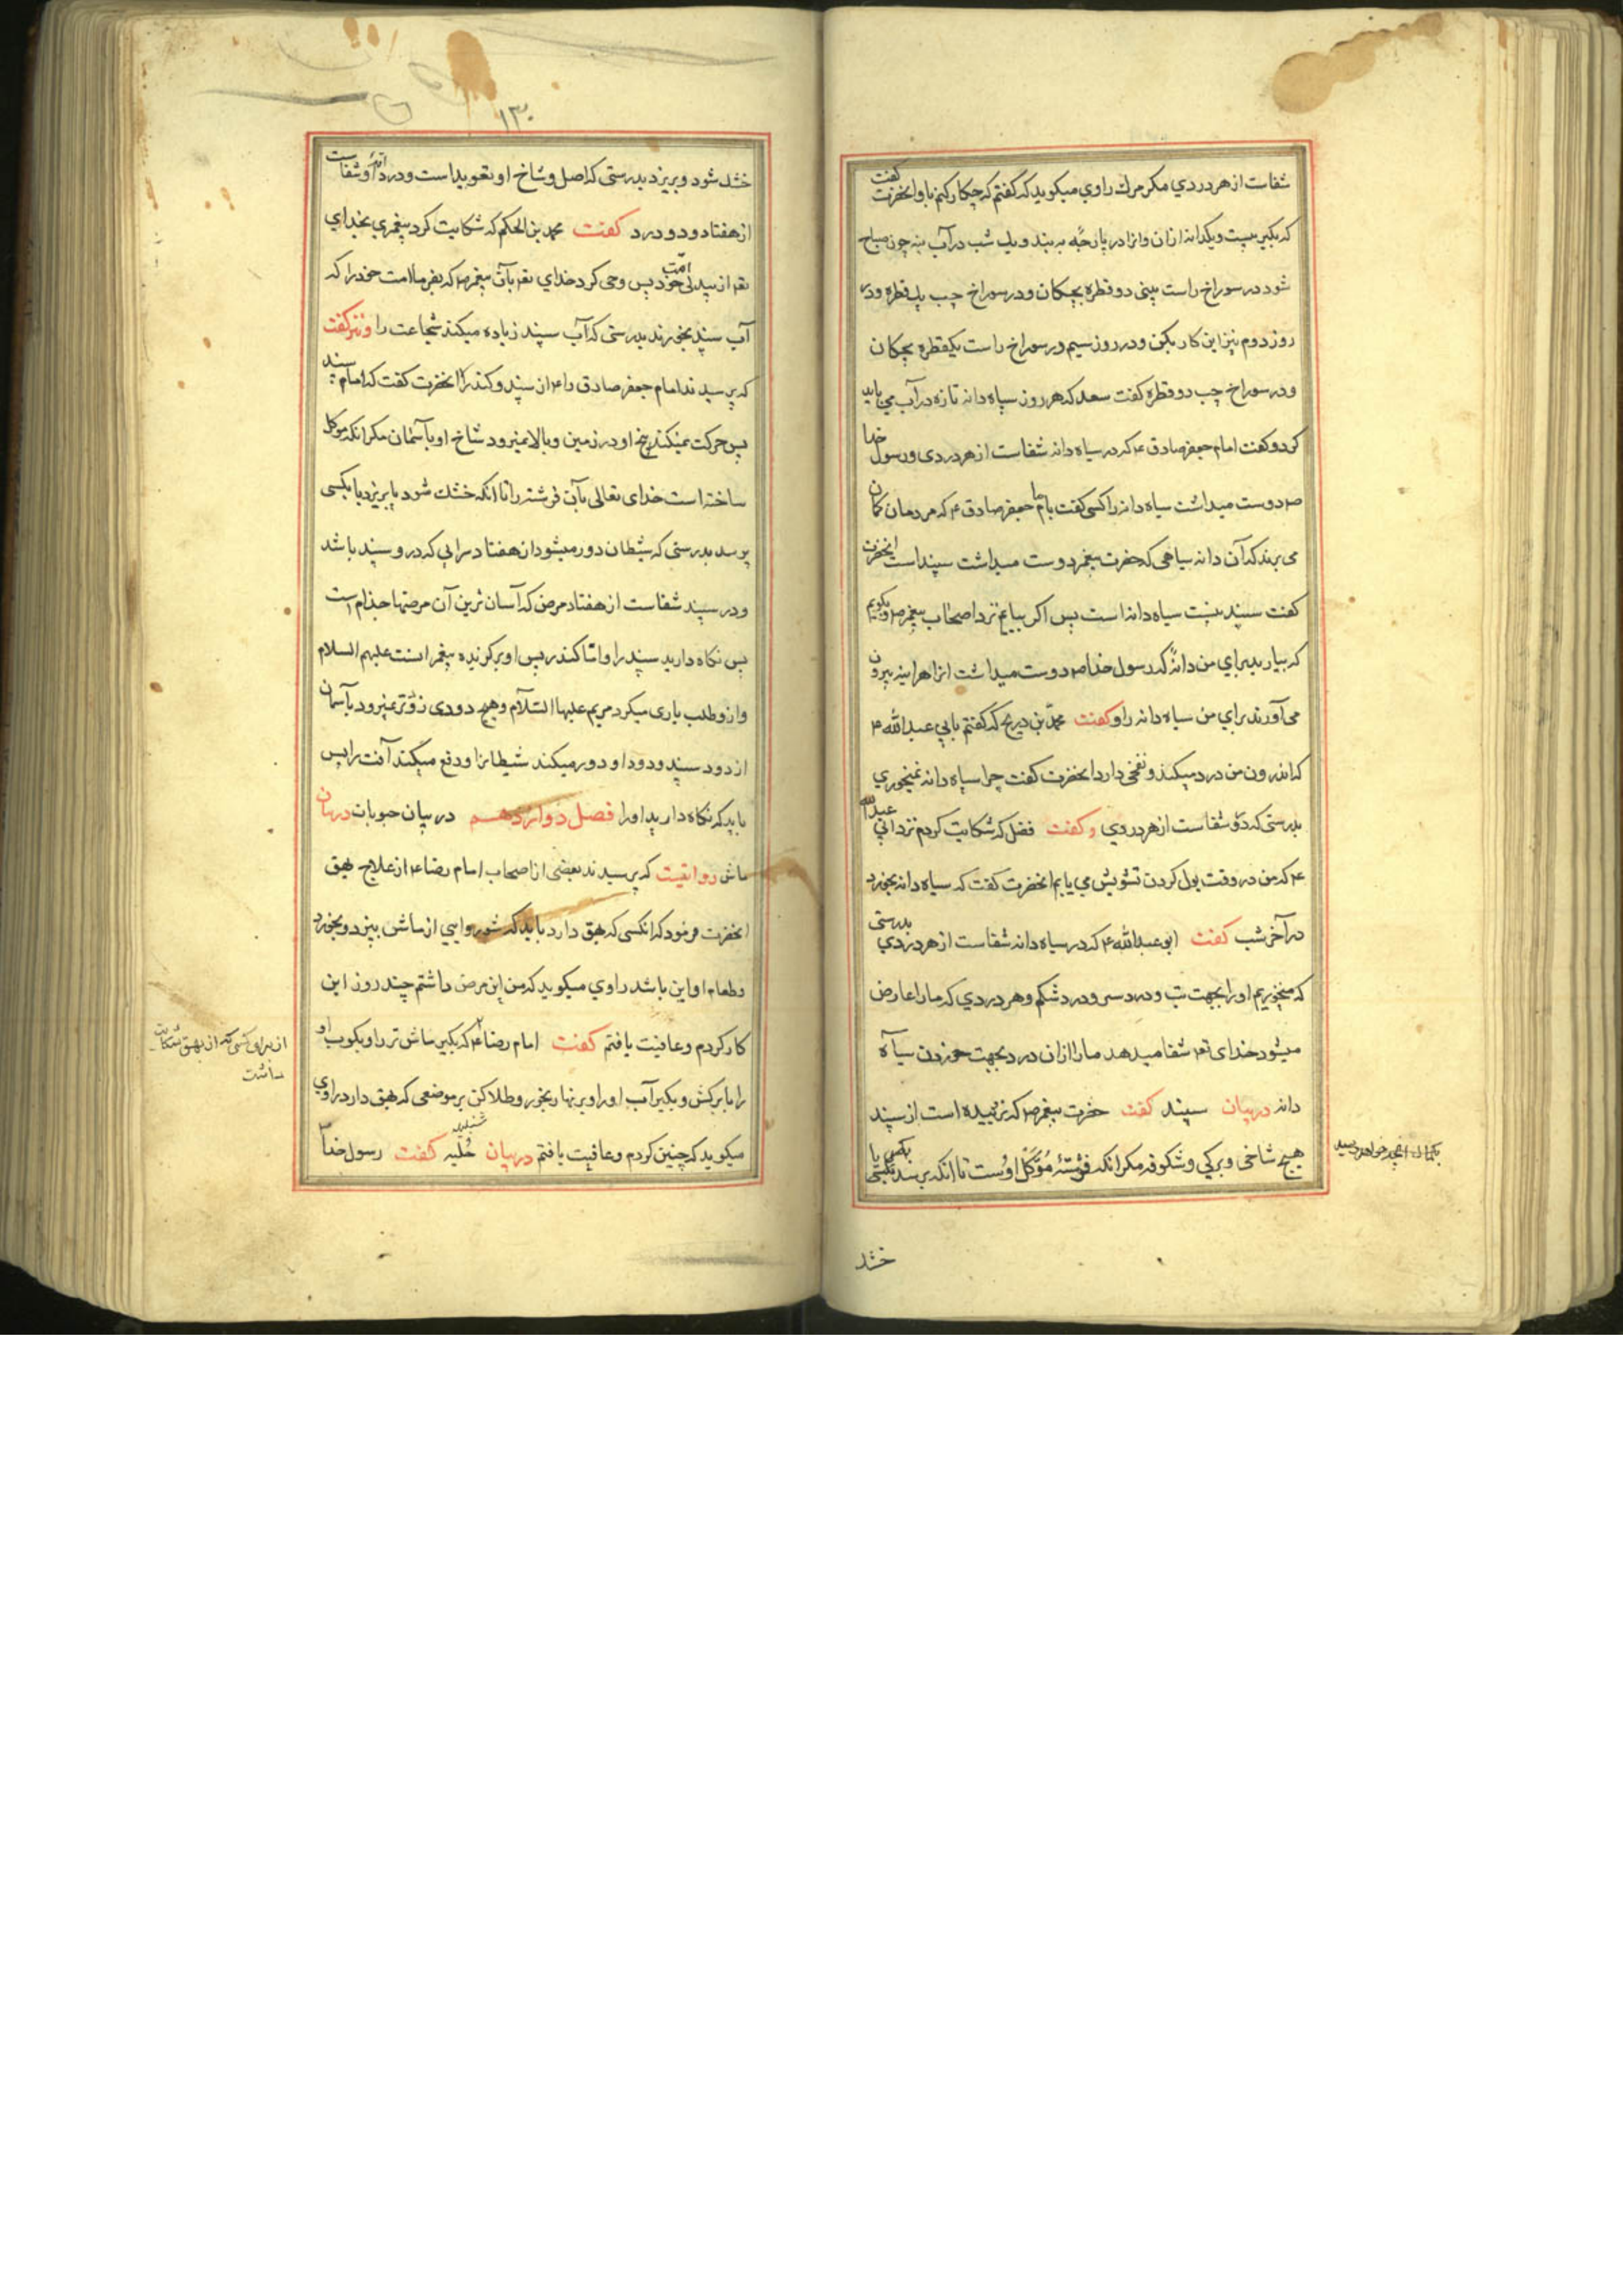 شفاست از هر دردي مكر مرك راوي ميكويد كه كفتم كه چكار كنم باو انحضرت كفت
كه بكير بيست ويكدانه ازان وانرا در پارچه به بند ويك شب در آب بنه چون صباح
شود در سوراخ راست بيني دو قطره بچكان ودر سوراخ چب يك قطره ودر
روز دوم نيز اين كار بكن ودر روز سيم در سوراخ راست يكقطره بچكان
ودر سوراخ چب دو قطره كفت سعد كه هر روز سياه دانه تازه در آب مي بايد
كرد وكفت امام جعفر صادق ع كه در سياه دانه شفاست از هر دردى ورسول خدا
ص دوست ميداشت سياه دانه را كسى كفت بامام جعفر صادق ع كه مردمان كمان
مى برند كه آن دانه سياهى كه حضرت پيغمبر دوست ميداشت سپند است انحضرت
كفت سپند نيست سياه دانه است پس اكر بيايم نزد اصحاب پيغمبر ص وبكويم
كه بياريد براي من دانهٔ كه رسول خدا ص دوست ميداشت انرا هراينه بيرون
مى آورند براي من سياه دانه را وكفت محمد بن ذريح كه كفتم بابي عبد الله ع
كه اندرون من درد ميكند ونفخى دارد انحضرت كفت چرا سياه دانه نميخوري
بدرستى كه درو شفاست از هر دردي وكفت فضل كه شكايت كردم نزد ابي عبدالله
ع كه من در وقت بول كردن تشويش مي يابم انحضرت كفت كه سياه دانه بخور
در آخر شب كفت ابو عبد الله ع كه در سياه دانه شفاست از هر دردي بدرستى
كه ميخوريم اورا بجهت تب ودرد سر ودرد شكم وهر دردي كه مارا عارض
ميشود خداى تع شفا ميدهد مارا ازان درد بجهت خوردن سياه
دانه در بيان سپند كفت حضرت پيغمبر ص كه نروييده است از سپند
هيچ شاخى وبركي وشكوفه مكر انكه فرشتهٔ مُوَكَّل اوست تا انكه برسد بكسى يا
خشد
خشد شود وبريزد بدرستى كه اصل وشاخ او تعويذ است ودر دانهٔ او شفاست
از هفتاد ودو درد كفت محمد بن الحكم كه شكايت كرد پيغمبري بخداي
تع از بيدلى امّت خود پس وحى كرد خداي تع بآن پيغمبر ص كه بفرما امت خود را كه
آب سپند بخورند بدرستى كه آب سپند زياده ميكند شجاعت را ونيز كفت
كه پرسيدند امام جعفر صادق را ع از سپند وكندر انحضرت كفت كه اما سپند
پس حركت نميكند بيخ او در زمين وبالا نميرود شاخ او باسمان مكر انكه موكل
ساخته است خداى تعالى بآن فرشته را تا انكه خشك شود يا بريزد يا بكسى
برسد بدرستى كه شيطان دور ميشود از هفتاد سرايى كه درو سپند باشد
ودر سپند شفاست از هفتاد مرض كه آسان ترين آن مرضها جذام است
پس نكاه داريد سپند را واما كندر پس او بركزيده پيغمبرانست عليهم السلام
وازو طلب يارى ميكرد مريم عليها السّلام وهيچ دودى زودتر نميرود بآسمان
از دود سپند ودود او دور ميكند شيطانرا ودفع ميكند آفت را پس
بايد كه نكاه داريد اورا فصل دوازدهم در بيان حبوبات در بيان
ماش روايتيست كه پرسيدند بعضى از اصحاب امام رضا ع از علاج بهق
انحضرت فرمود كه انكسى كه بهق دارد بايد كه شوروايى از ماش بپزد وبخورد
وطعام او اين باشد راوي ميكويد كه من اين مرض داشتم چند روز اين
كار كردم وعافيت يافتم كفت امام رضا ع كه بكير ماش تر را وبكوب او
را با بركش وبكير آب اورا وبرنهار بخور وطلا كن بر موضعى كه بهق دارد راوي
ميكويد كه چنين كردم وعافيت يافتم در بيان حُلبه شنبليله كفت رسول خدا
از براى كسى كه از بهق شكايت
داشت
١٣٠